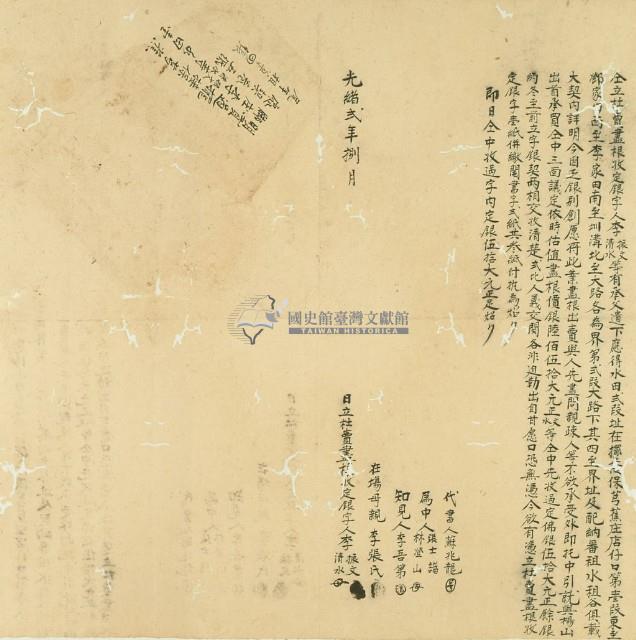 仝立杜賣盡根收定銀字人李振文清水等有承父遺下應得水田弍段址在擺接保芎蕉庄店仔口第壹段東至
鄭家田西至李家田南至圳溝北至大路各為界第弍段大路下其四至界址及配納番租水租谷俱載
大契內詳明今因乏銀別創愿將此業盡根出賣與人先盡問親疎人等不欲承受外即托中引就與楊山
出首承買仝中三面議定依時估值盡根價銀陸佰伍拾大元正文水等仝中先收過定佛銀伍拾大元正餘銀
約冬至前立字銀契兩相交收清楚此人義交關各非迫勒出自甘愿口恐無憑今欲有憑立杜賣盡根收
定銀字壹紙併繳鬮書字弍紙共叁紙付執為炤
即日仝中收過字內定銀伍拾大元正足炤
光緒弍年捌月
代書人蘇兆龍
為中人張士諧林登山
知見人李吾第
在塲母親李張氏
日立杜賣業盡根收定銀字人李振文清水
國史館臺灣文獻館
TAIWAN HISTORICA